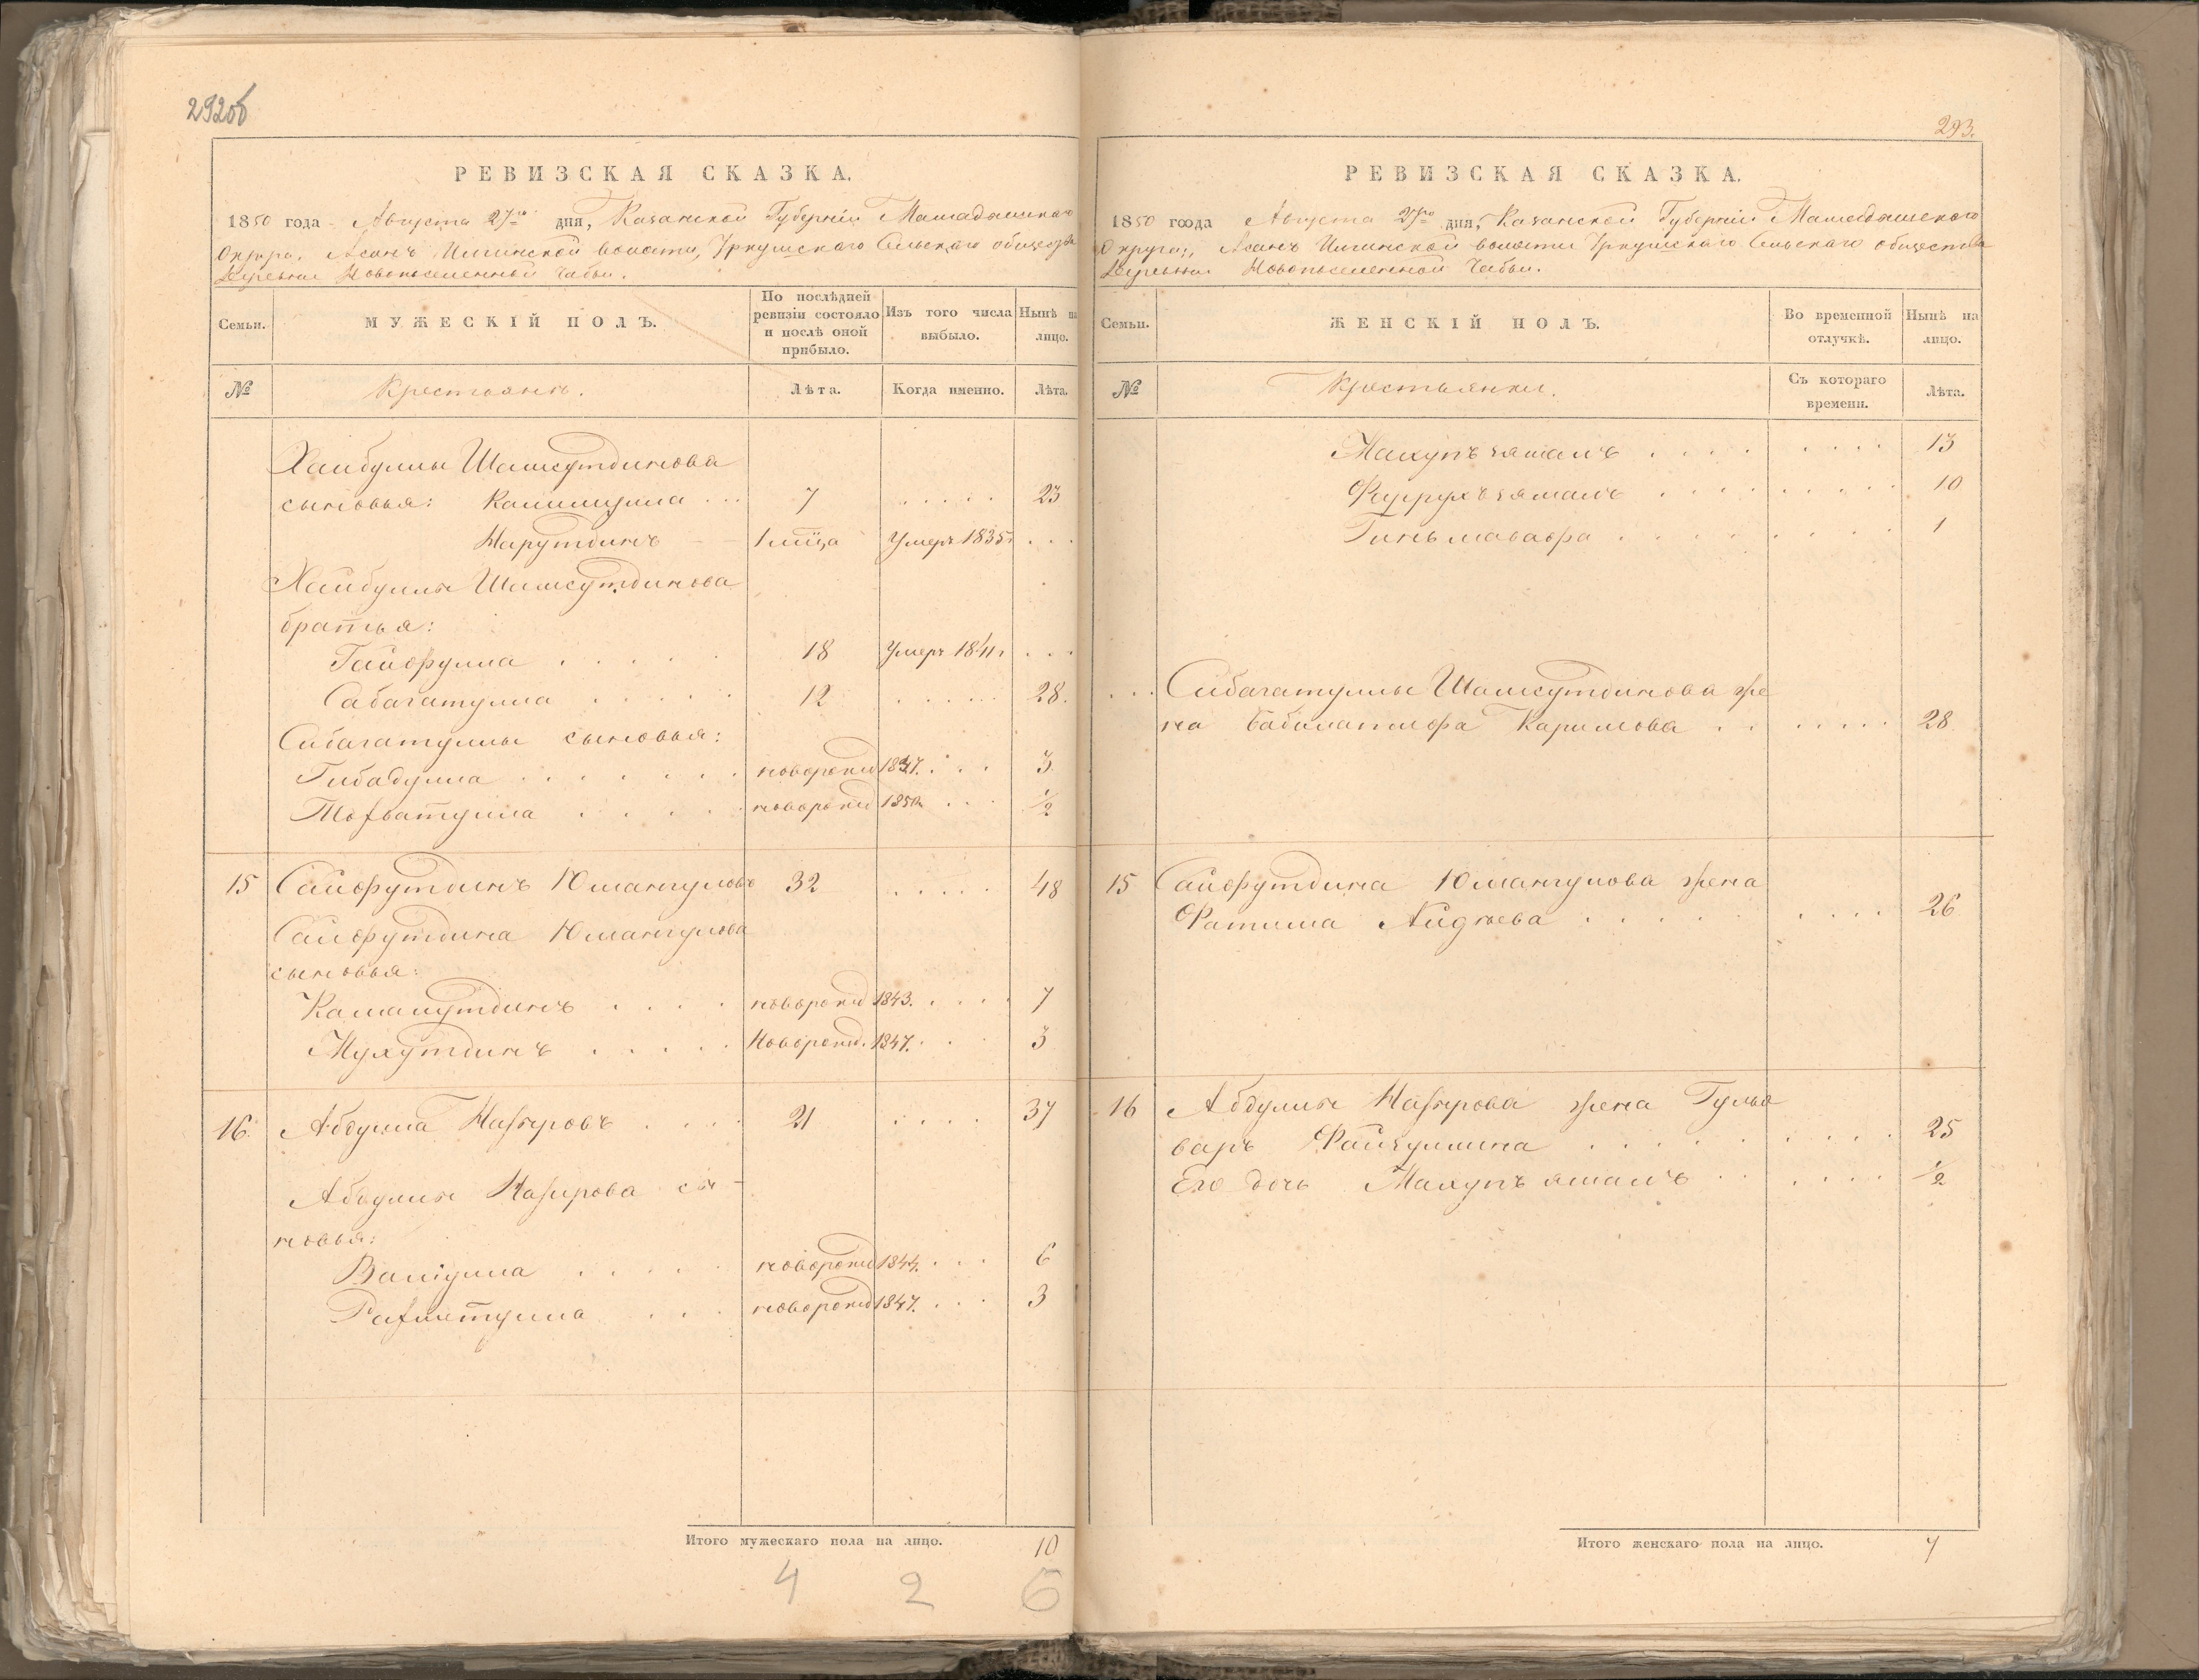 292об
РЕВИЗСКАЯ СКАЗКА.
1850 года Августа 27го дня, Казанской Губерніи Мамадышскаго
Округа, Асанъ Илгинской волости, Уркушскаго Сельскаго общества
Деревни Новопоселенной Чабьи.
Семьи.
МУЖЕСКІЙ ПОЛЪ.
По послѣдней
ревизіи состояло
и послѣ оной
прибыло.
Изъ того числа
выбыло.
Нынѣ на
лицо.
№
Крестьянъ.
Лѣта.
Когда именно.
Лѣта.
Хайбуллы Шамсутдинова
сыновья: Калимулла ... 7 ..... 23
Нарутдинъ 1 м͠ца Умеръ 1835г ...
Хайбуллы Шамсутдинова
братья:
Гайфулла ..... 18 Умеръ 1841г ...
Сабагатулла ..... 12 ..... 28.
Сабагатуллы сыновья:
Гибадулла ....... новорожд 1847. ... 3
новорожд 1850г ... 1/2
15 Сайфутдинъ Юмангуловъ 32 ..... 48
Сайфутдина Юмангулова
сыновья:
Камалутдинъ .... новорожд 1843. .... 7
Мухутдинъ ..... Новорожд. 1847. ... 3
16. Абдулла Назыровъ .... 21 .... 37
Абдуллы Назырова сы-
новья:
Валіулла ..... новорожд 1844. ... 6
Рахметулла ... новорожд 1847. ... 3
Итого мужескаго пола на лицо. 10
4 2 6
293.
РЕВИЗСКАЯ СКАЗКА.
1850 года Августа 27го дня, Казанской Губерніи Мамадышскаго
Округа, Асанъ Илгинской волости Уркушскаго Сельскаго общества
Деревни Новопоселенной Чабьи.
Семьи.
ЖЕНСКІЙ ПОЛЪ.
Во временной
отлучкѣ.
Нынѣ на
лицо.
№
Крестьянки.
Съ котораго
времени.
Лѣта.
Махупъ зямалъ .... .... 13
Фаррухъ зямалъ .... ..... 10
..... .... 1
... Сабагатуллы Шамсутдинова же
на Каримова .. ..... 28
15 Сайфутдина Юмангулова жена
Фатима ..... .... 26
16 Абдуллы Назырова жена Гульб
варъ Файзуллина ..... ..... 25
Его дочь Махупъ ямалъ .. .... 1/2
Итого женскаго пола на лицо. 7